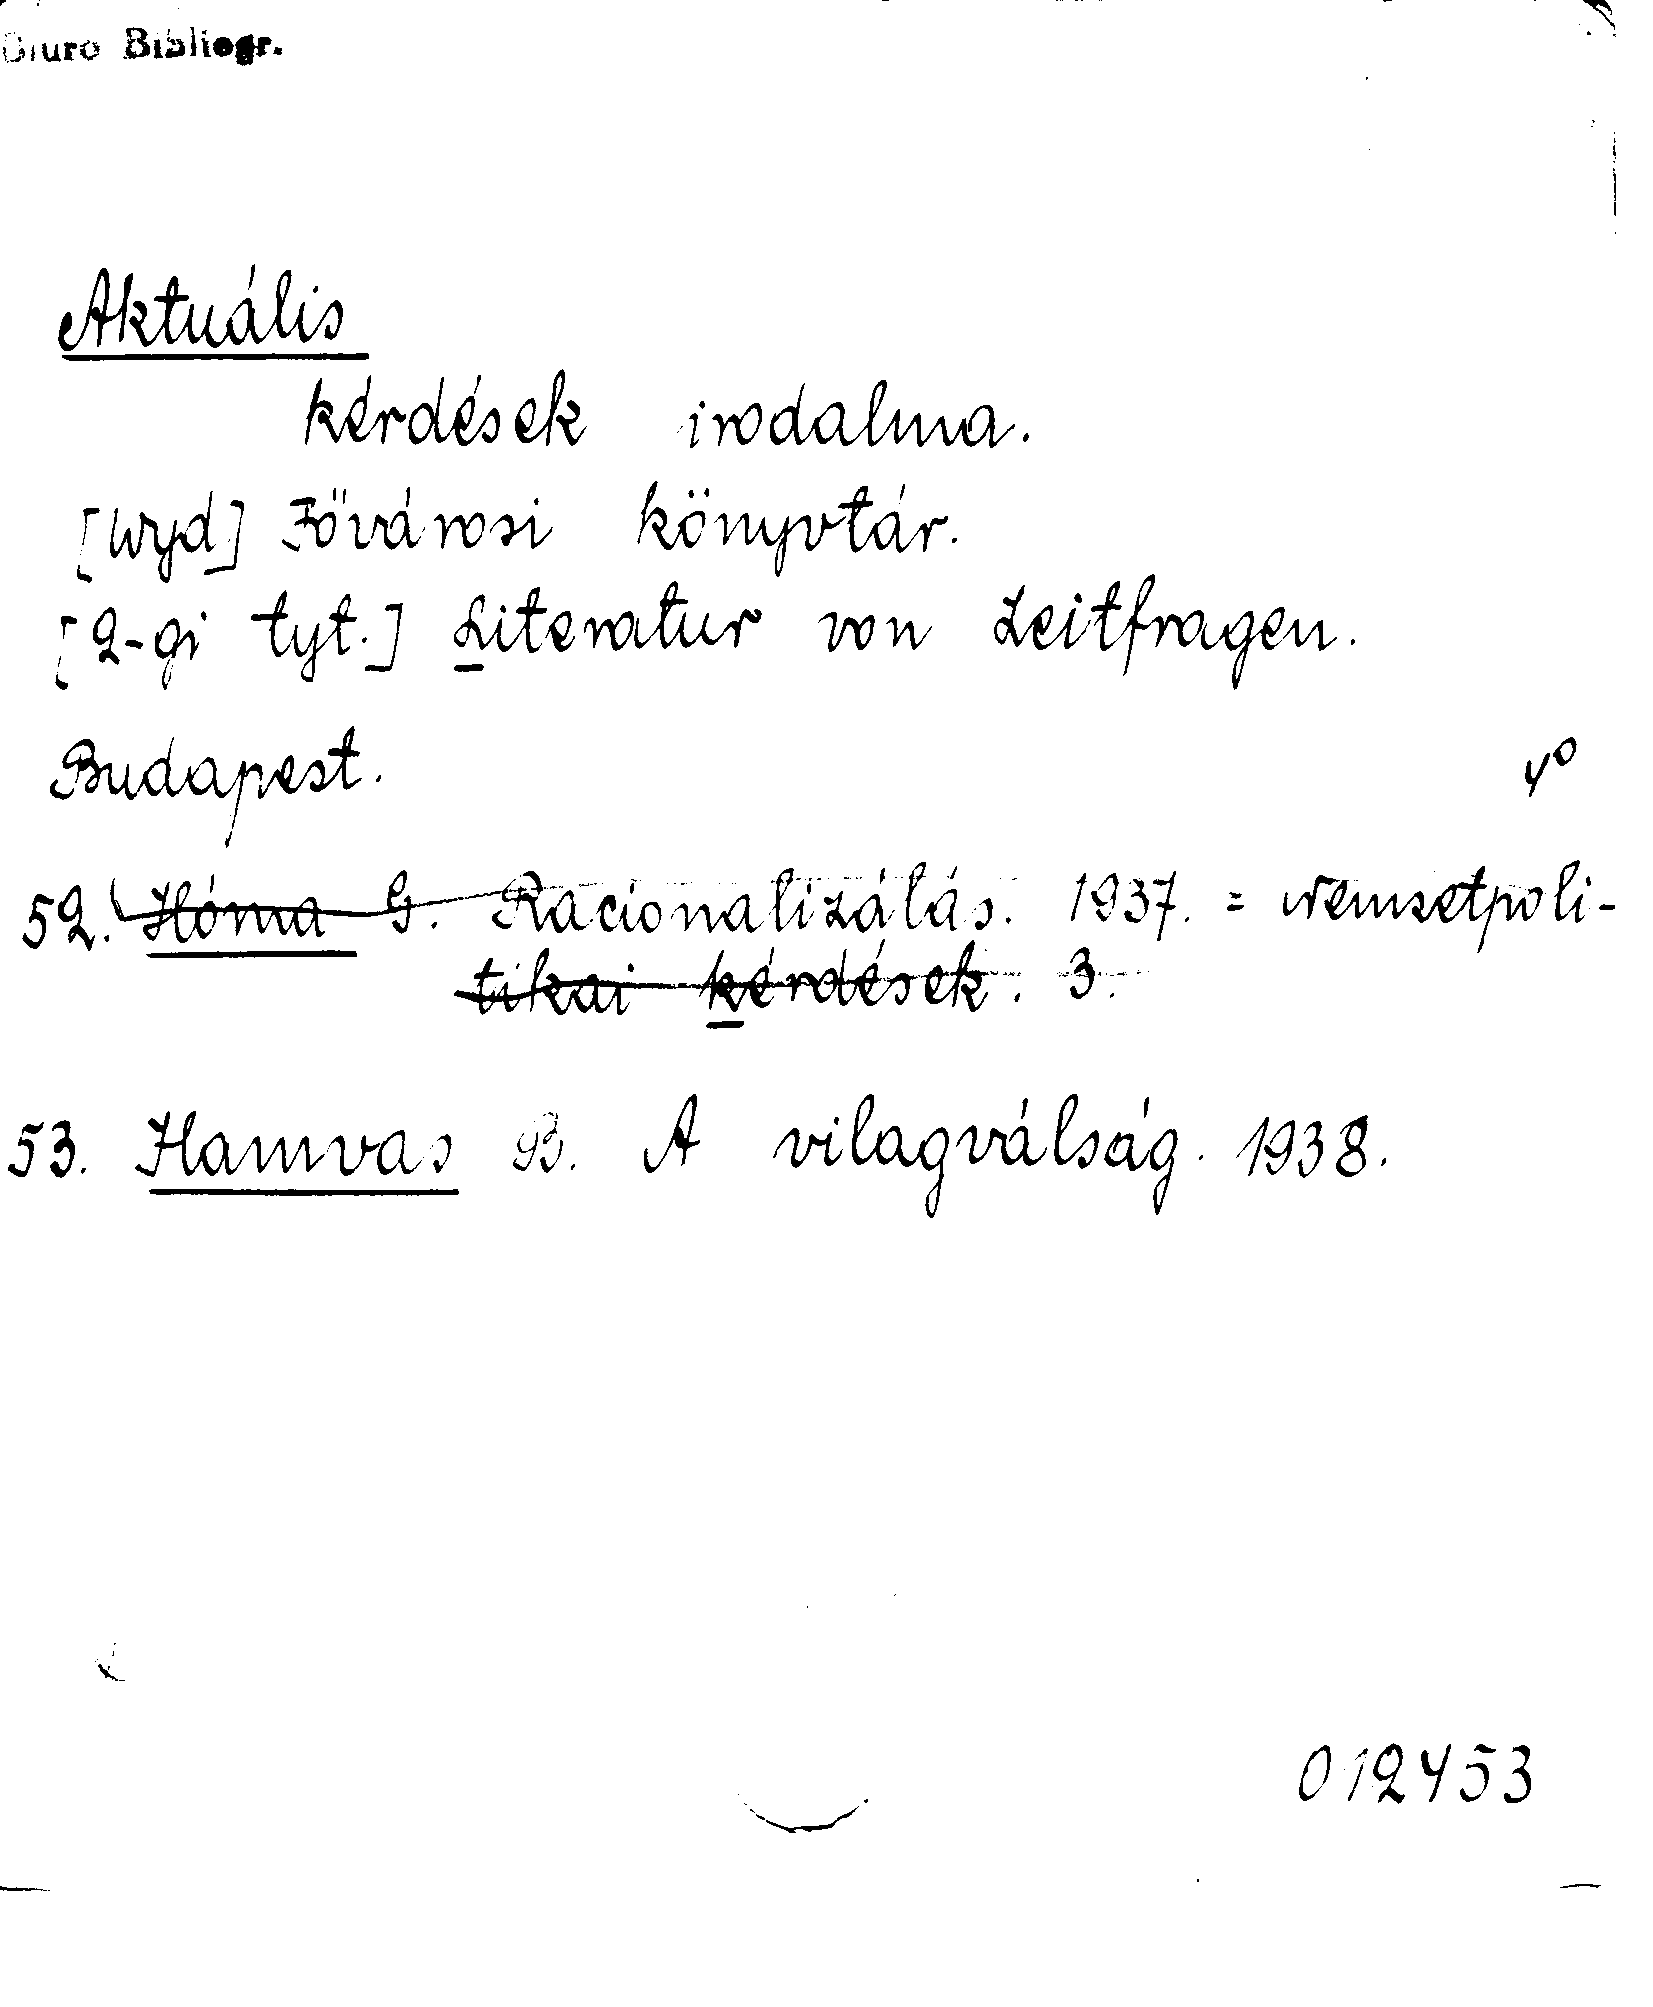 Biuro Bibliogr.
Aktuális
kérdések irodalma.
[wyd] Fővárosi könyvtár.
[2-gi tyt.] Literatur von Zeitfragen.
Budapest.
4°
52. Hóma G. Racionalizálás. 1937. = Nemzetpoli-
tikai kérdések. 3.
53. Hamvas B. A vilagválság. 1938.
012453